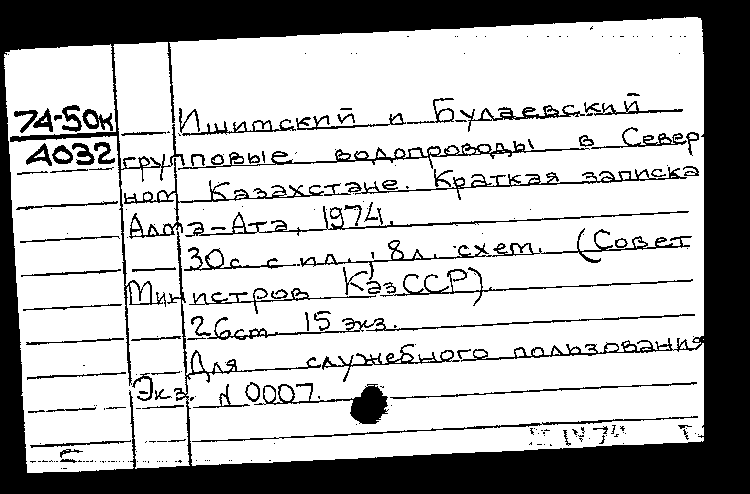 74-50к
4032
Ишимский и Булаевский
групповые водопроводы в Север-
ном Казахстане. Краткая записка
Алма-Ата, 1974.
30 с. с ил., 8 л. схем. (Совет
Министров КазССР).
26 см. 15 экз.
Для служебного пользования
Экз. N 0007.
IV 74